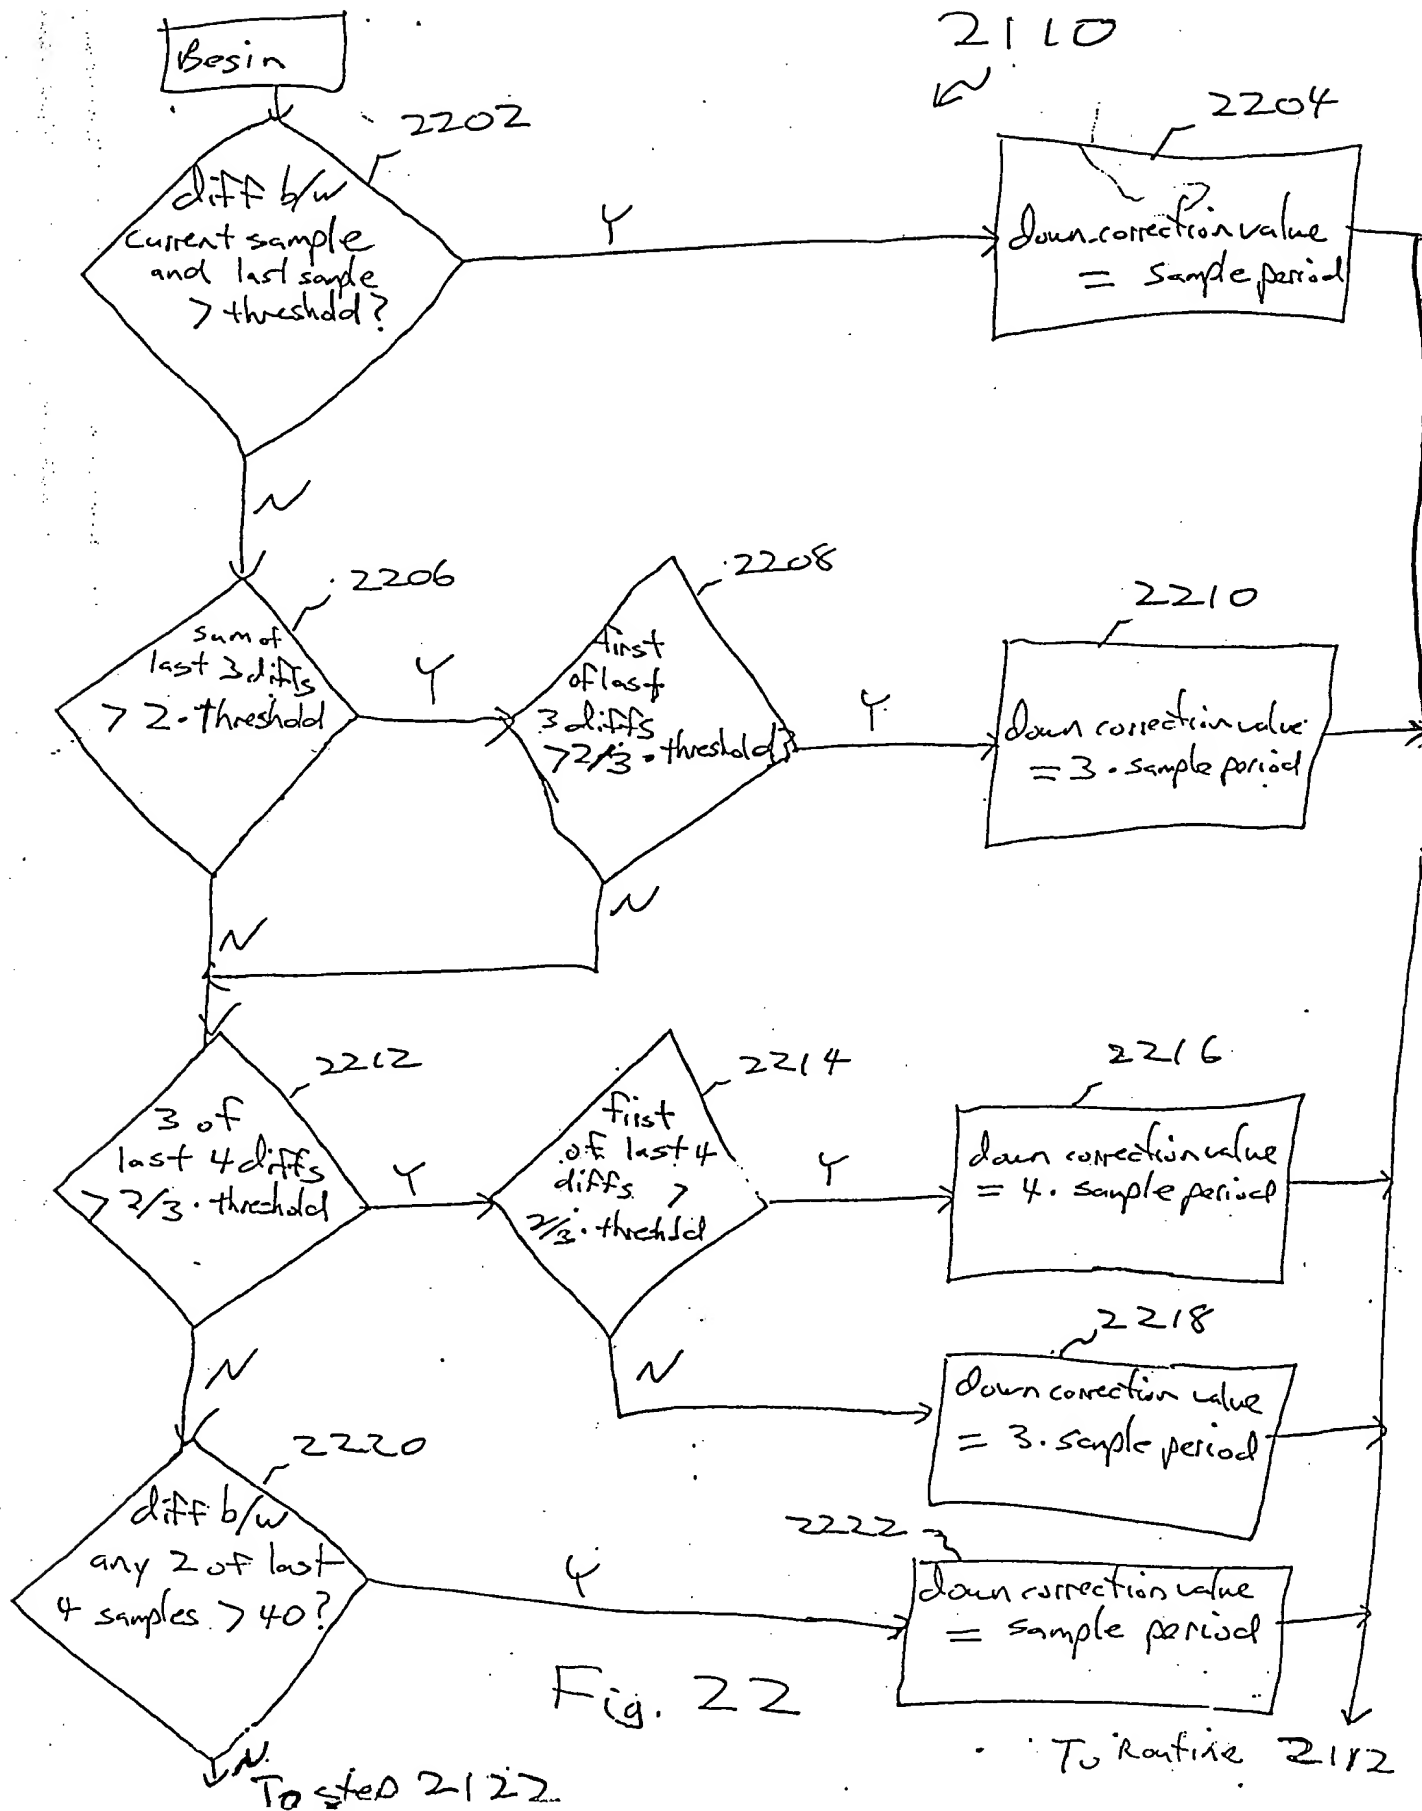 Begin
2110
2202
2204
diff b/w
current sample
and last sample
> threshold?
Y
down-correction value
= sample period
N
2206
2208
2210
sum of
last 3 diffs
> 2·threshold
Y
first
of last
3 diffs
>2/3·threshold
Y
down correction value
= 3·sample period
N
N
2212
2214
2216
3 of
last 4 diffs
> 2/3·threshold
Y
first
of last 4
diffs >
2/3·threshold
Y
down correction value
= 4·sample period
N
N
2218
down correction value
= 3·sample period
2220
2222
diff b/w
any 2 of last
4 samples > 40?
Y
down correction value
= sample period
Fig. 22
N
To step 2122
To Routine 2112